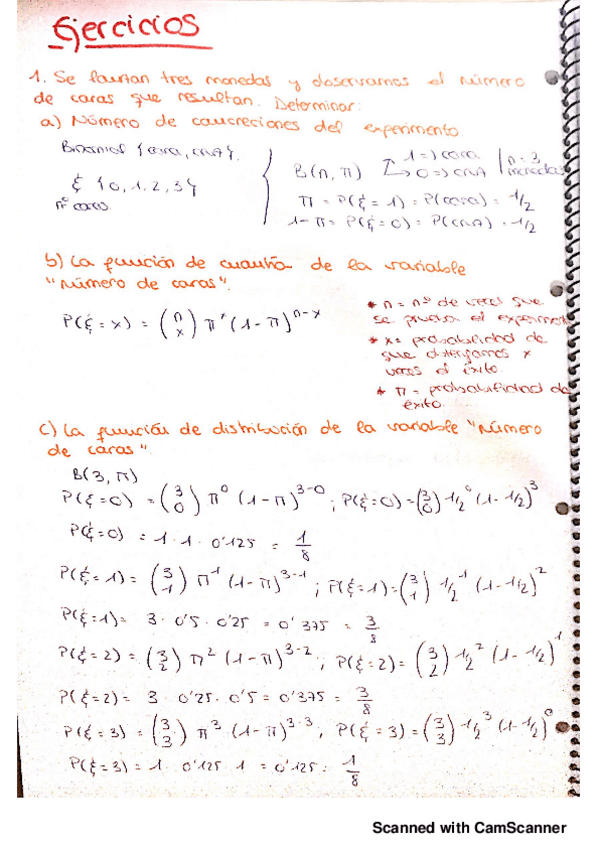 Ejercicios
1. Se lanzan tres monedas y observamos el número
de caras que resultan. Determinar:
a) Número de concreciones del experimento
Binomial {cara, cruz}.
ξ {0, 1, 2, 3}
nº caras
B(n, π) 1 => cara
0 => cruz
n = 3
monedas
π = P(ξ = 1) = P(cara) = 1/2
1-π = P(ξ = 0) = P(cruz) = 1/2
b) La función de cuantía de la variable
"Número de caras".
P(ξ = x) = (n x) π^x (1-π)^n-x
* n = nº de veces que
se prueba el experimento
* x = probabilidad de
que obtengamos x
veces el éxito.
* π = probabilidad de
éxito.
c) La función de distribución de la variable "Número
de caras".
B(3, π)
P(ξ=0) = (3 0) π^0 (1-π)^3-0 ; P(ξ=0) = (3 0) 1/2^0 (1-1/2)^3
P(ξ=0) = 1 · 1 · 0'125 = 1/8
P(ξ=1) = (3 1) π^1 (1-π)^3-1 ; P(ξ=1) = (3 1) 1/2^1 (1-1/2)^2
P(ξ=1) = 3 · 0'5 · 0'25 = 0'375 = 3/8
P(ξ=2) = (3 2) π^2 (1-π)^3-2 ; P(ξ=2) = (3 2) 1/2^2 (1-1/2)^1
P(ξ=2) = 3 · 0'25 · 0'5 = 0'375 = 3/8
P(ξ=3) = (3 3) π^3 (1-π)^3-3 ; P(ξ=3) = (3 3) 1/2^3 (1-1/2)^0
P(ξ=3) = 1 · 0'125 · 1 = 0'125 = 1/8
Scanned with CamScanner